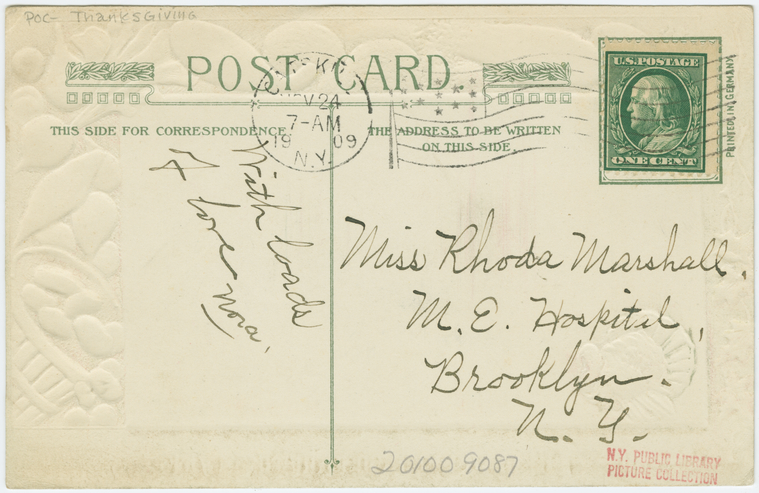 POC- Thanksgiving
POST CARD
U.S. POSTAGE
ONE CENT
PRINTED IN GERMANY
NOV 24
7-AM
19 09
N.Y.
THIS SIDE FOR CORRESPONDENCE
THE ADDRESS TO BE WRITTEN
ON THIS SIDE
With loads
of love
Nora.
Miss Rhoda Marshall.
M. E. Hospital,
Brooklyn.
N. Y.
201009087
N.Y. PUBLIC LIBRARY
PICTURE COLLECTION